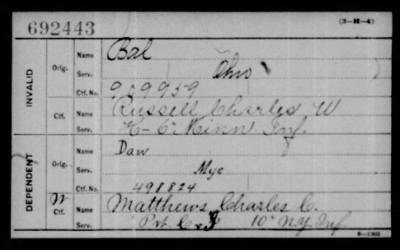 692443
(3-H-4)
INVALID
Orig.
Name Bal
Serv. Ohio
Ctf. No. 909959
Ctf.
Name Russell Charles W
Serv. K-6" Minn Inf
DEPENDENT
Orig.
Name Daw
Serv. Myc
Ctf. No. 498824
W
Ctf.
Name Matthews, Charles C.
Serv. Pvt. 10" N.Y. Inf